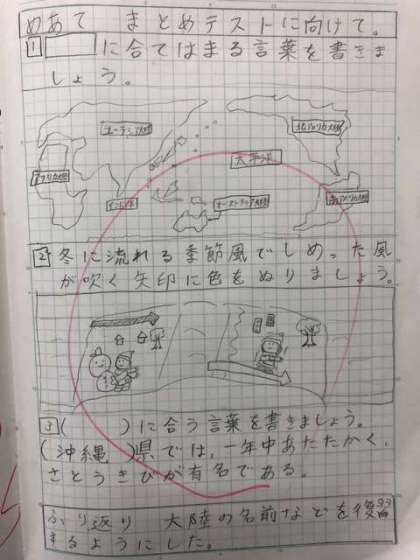 めあて まとめテストに向けて。
1 に合てはまる言葉を書きま
しょう。
ユーラシア大陸
北アメリカ大陸
アフリカ大陸
太平洋
インド洋
オーストラリア大陸
南アメリカ大陸
2 冬に流れる季節風でしめった風
が吹く矢印に色をぬりましょう。
3 ( )に合う言葉を書きましょう。
(沖縄)県では、一年中あたたかく、
さとうきびが有名である。
ふり返り 大陸の名前などを復習
するようにした。